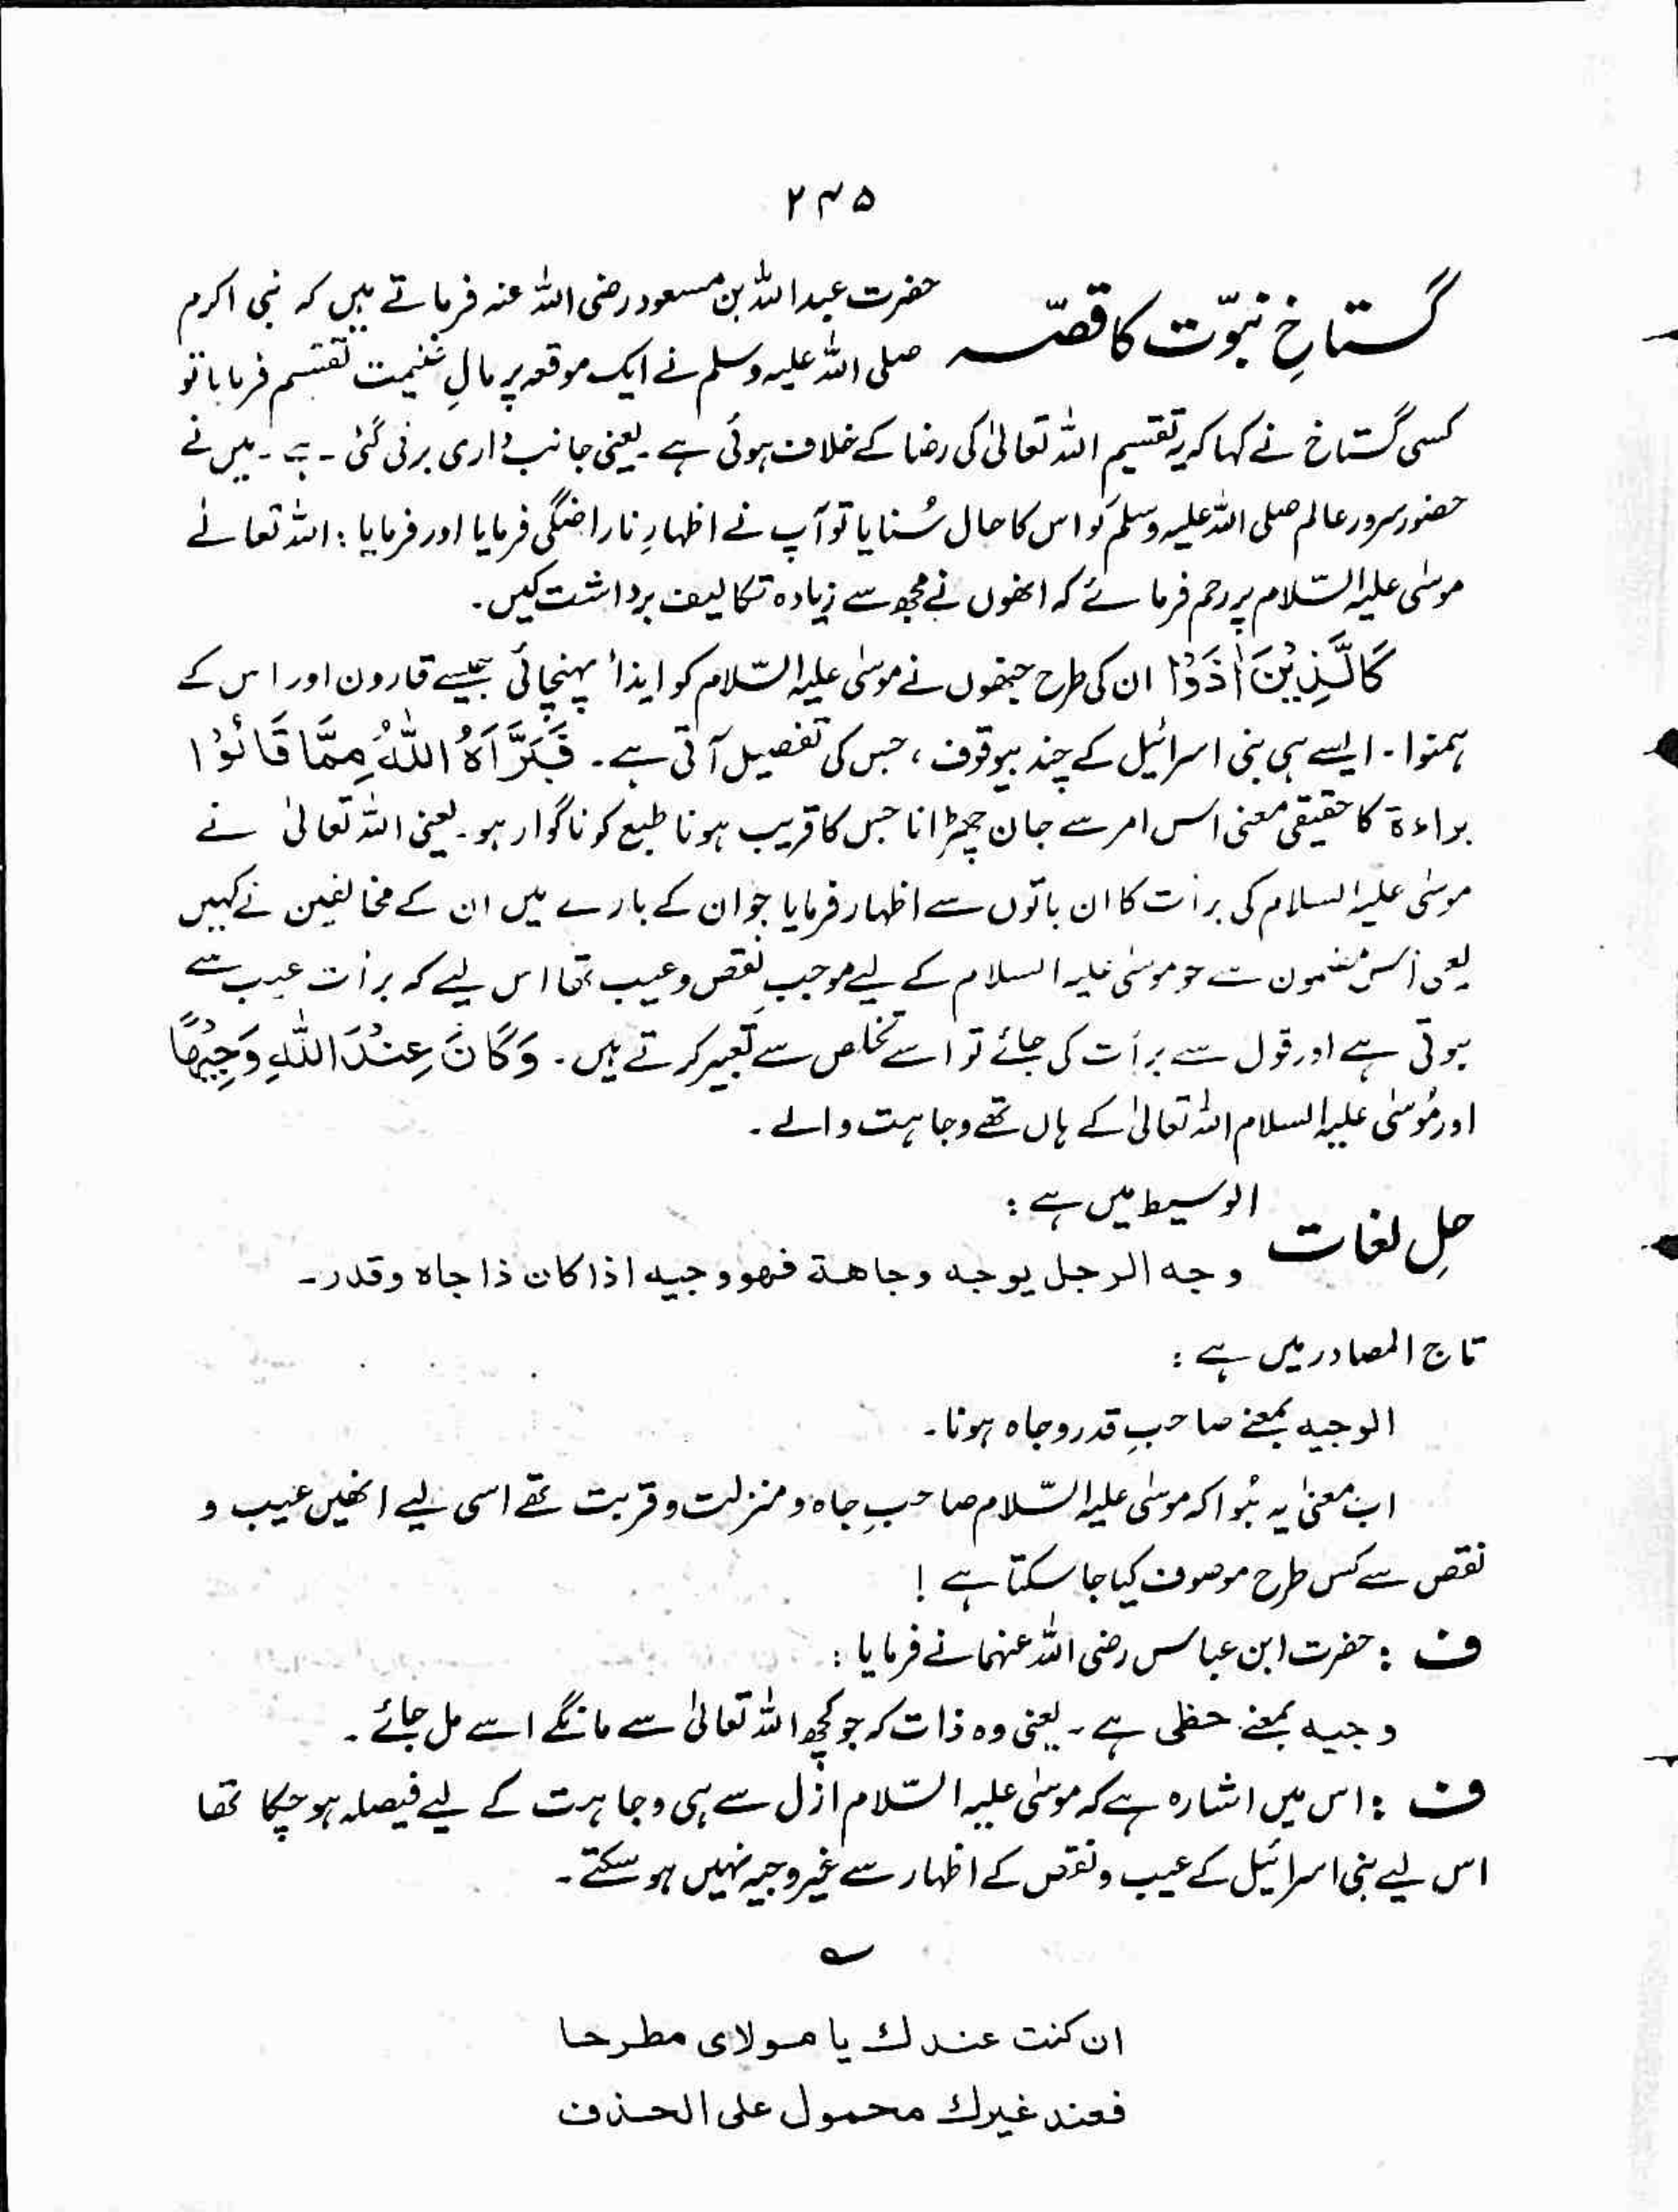 ۲۴۵
گستاخِ نبوّت کا قصّہ حضرت عبداللہ بن مسعود رضی اللہ عنہ فرماتے ہیں کہ نبی اکرم
صلی اللہ علیہ وسلم نے ایک موقعہ پر مالِ غنیمت تقسیم فرمایا تو
کسی گستاخ نے کہا کہ یہ تقسیم اللہ تعالیٰ کی رضا کے خلاف ہوئی ہے۔ یعنی جانب داری برتی گئی ۔ ہے ۔ میں نے
حضور سرور عالم صلی اللہ علیہ وسلم کو اس کا حال سُنایا تو آپ نے اظہارِ ناراضگی فرمایا اور فرمایا : اللہ تعالے
موسٰی علیہ السّلام پر رحم فرمائے کہ انھوں نے مجھ سے زیادہ تکالیف برداشت کیں۔
كَالَّذِيْنَ اٰذَوْا ان کی طرح جنھوں نے موسٰی علیہ السّلام کو ایذأ پہنچائی جیسے قارون اور اس کے
ہمنوا ۔ ایسے ہی بنی اسرائیل کے چند بیوقوف ، جس کی تفصیل آتی ہے ۔ فَبَرَّاَهُ اللّٰهُ مِمَّا قَالُوْا
براءۃ کا حقیقی معنی اس امر سے جان چھڑانا جس کا قریب ہونا طبع کو ناگوار ہو۔ یعنی اللہ تعالیٰ نے
موسٰی علیہ السلام کی برأت کا ان باتوں سے اظہار فرمایا جو ان کے بارے میں ان کے مخالفین نے کہیں
یعنی اس مضمون سے جو موسٰی علیہ السلام کے لیے موجبِ نقص و عیب تھا اس لیے کہ برأت عیب سے
ہوتی ہے اور قول سے برأت کی جائے تو اسے تخلص سے تعبیر کرتے ہیں ۔ وَكَانَ عِنْدَ اللّٰهِ وَجِيْهًا
اور مُوسٰی علیہ السلام اللہ تعالیٰ کے ہاں تھے وجاہت والے ۔
حلِ لغات الوسیط میں ہے :
وجه الرجل یوجه وجاهة فهو وجیه اذا كان ذا جاہ وقدر۔
تاج المصادر میں ہے :
الوجیہ بمعنے صاحبِ قدر و جاہ ہونا۔
اب معنیٰ یہ ہُوا کہ موسٰی علیہ السّلام صاحبِ جاہ و منزلت و قربت تھے اسی لیے انھیں عیب و
نقص سے کس طرح موصوف کیا جا سکتا ہے !
ف : حضرت ابن عباس رضی اللہ عنہما نے فرمایا :
وجیہ بمعنے حظی ہے ۔ یعنی وہ ذات کہ جو کچھ اللہ تعالیٰ سے مانگے اسے مل جائے ۔
ف : اس میں اشارہ ہے کہ موسٰی علیہ السّلام ازل سے ہی وجاہت کے لیے فیصلہ ہو چکا تھا
اس لیے بنی اسرائیل کے عیب و نقص کے اظہار سے غیر وجیہ نہیں ہو سکتے ۔
؎
ان کنت عندك یا مولای مطرحا
فعند غیرك محمول علی الحذف